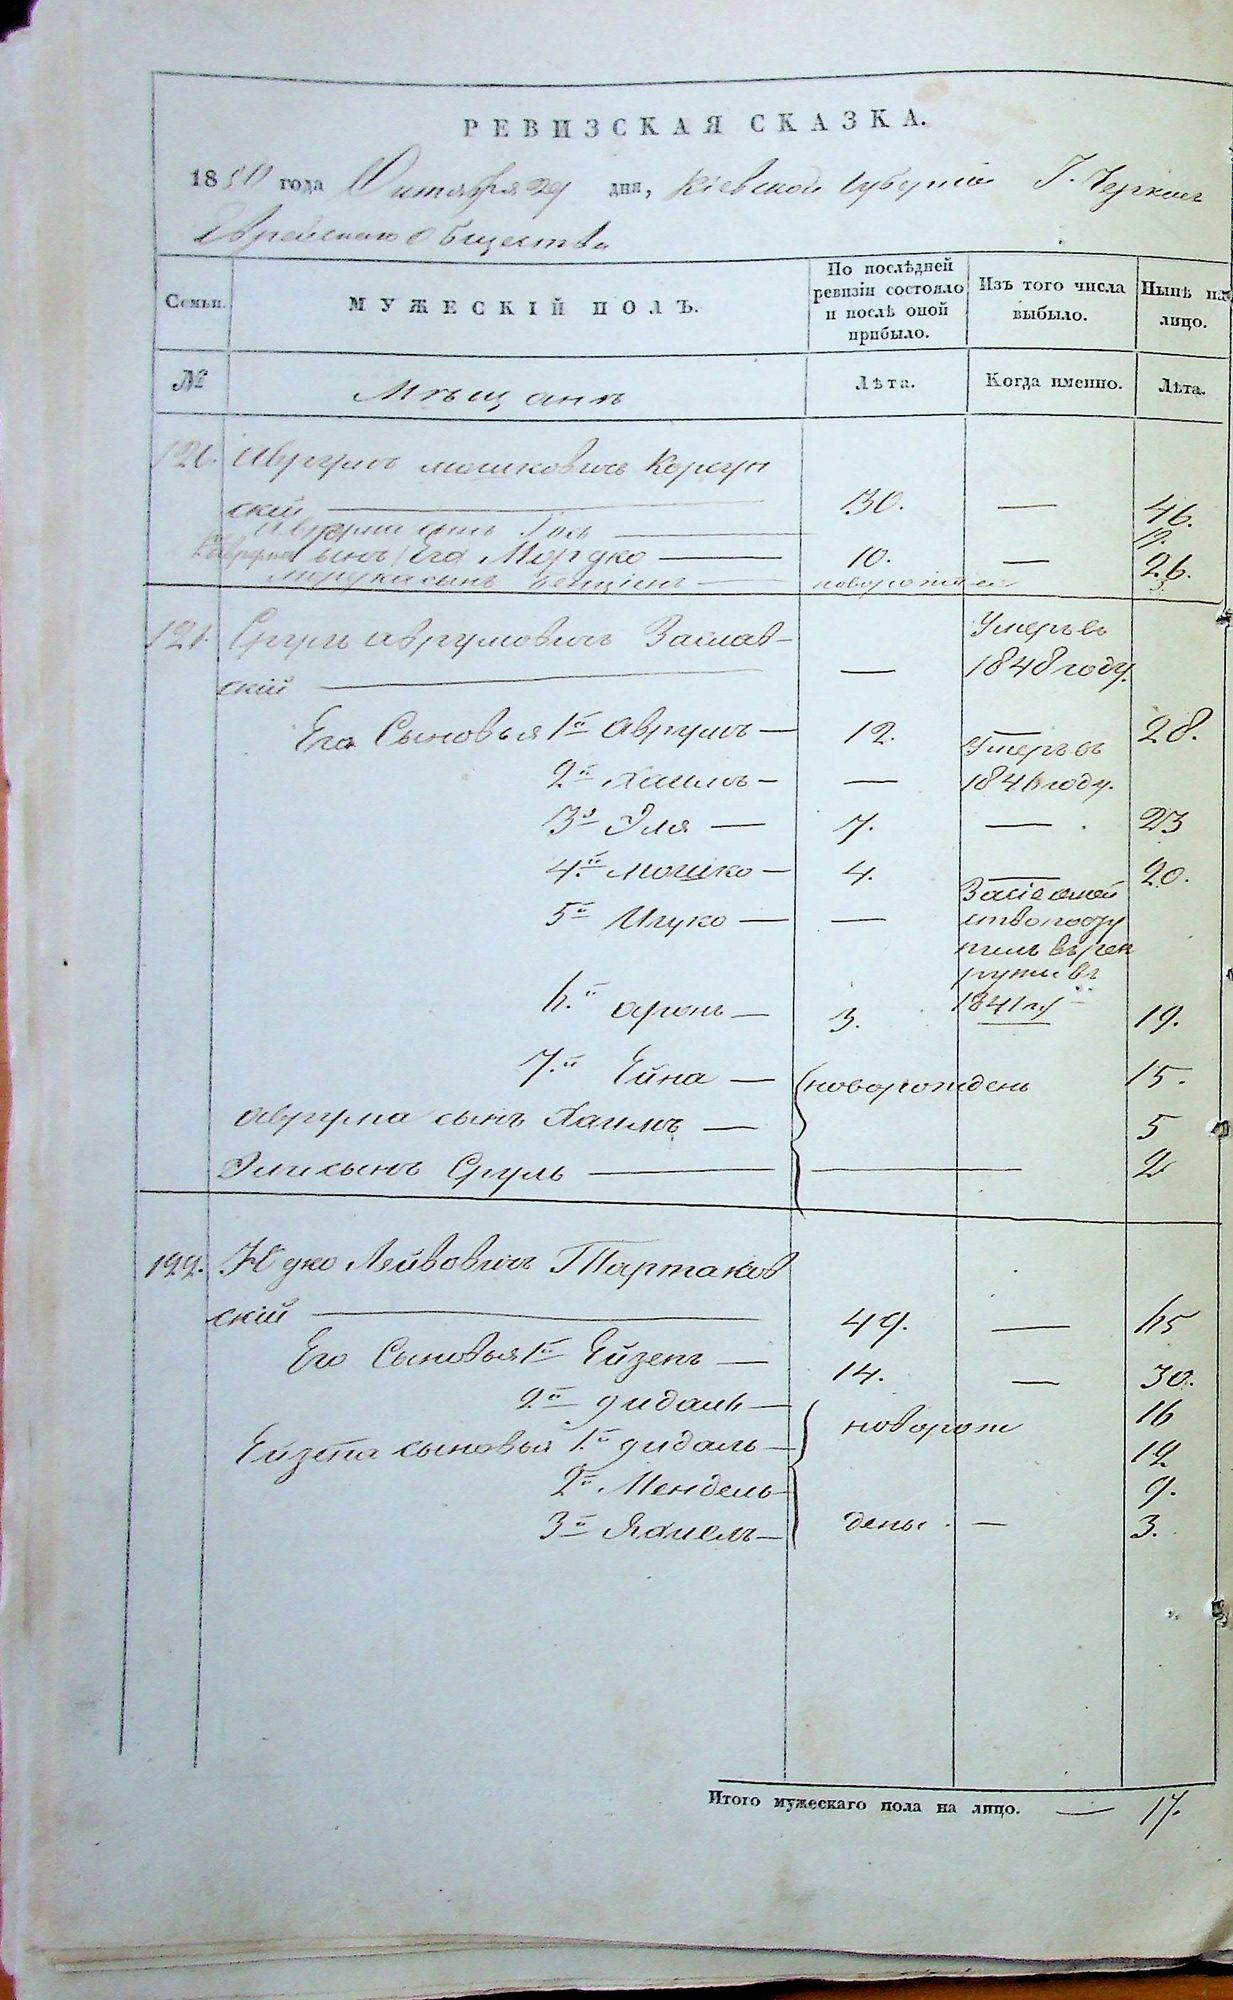 РЕВИЗСКАЯ СКАЗКА.
1850 года Октября 29 дня, Кіевской Губерніи Г. Черкас
Еврейскаго Общества
Семьи.
МУЖЕСКІЙ ПОЛЪ.
По послѣдней ревизіи состояло и послѣ оной прибыло.
Изъ того числа выбыло.
Нынѣ на лицо.
№
Мѣщанъ
Лѣта.
Когда именно.
Лѣта.
120. Аврумъ Мошковичъ Корсун
скій — 30. — 46.
Аврума сынъ —
Аврума сынъ Его Мордко — 10. — 26.
Мордки сынъ — новорожден 3.
121. Сруль Аврумовичъ Заслав-
скій — — Умеръ въ 1848 году.
Его Сыновья 1й Аврумъ — 12. — 28.
2й Хаимъ — — Умеръ въ 184 году.
3й Эля — 7. — 23
4й Мошко — 4. — 20.
5й Ицко — — въ рекруты въ 1841 г.
6й Аронъ — 3. — 19.
7й Ейна — новорожденъ 15.
Аврума сынъ Хаимъ — 5
Эли сынъ Сруль — — 2
122. Юдко Лейбовичъ Тартаков
скій — 49. — 65
Его Сыновья 1й Ейзеръ — 14. — 30.
2й Дидаль — новорож 16
Ейзера сыновья 1й Дидаль — 12
2й Мендель — 9.
3й — дены — 3.
Итого мужескаго пола на лицо. — 17.